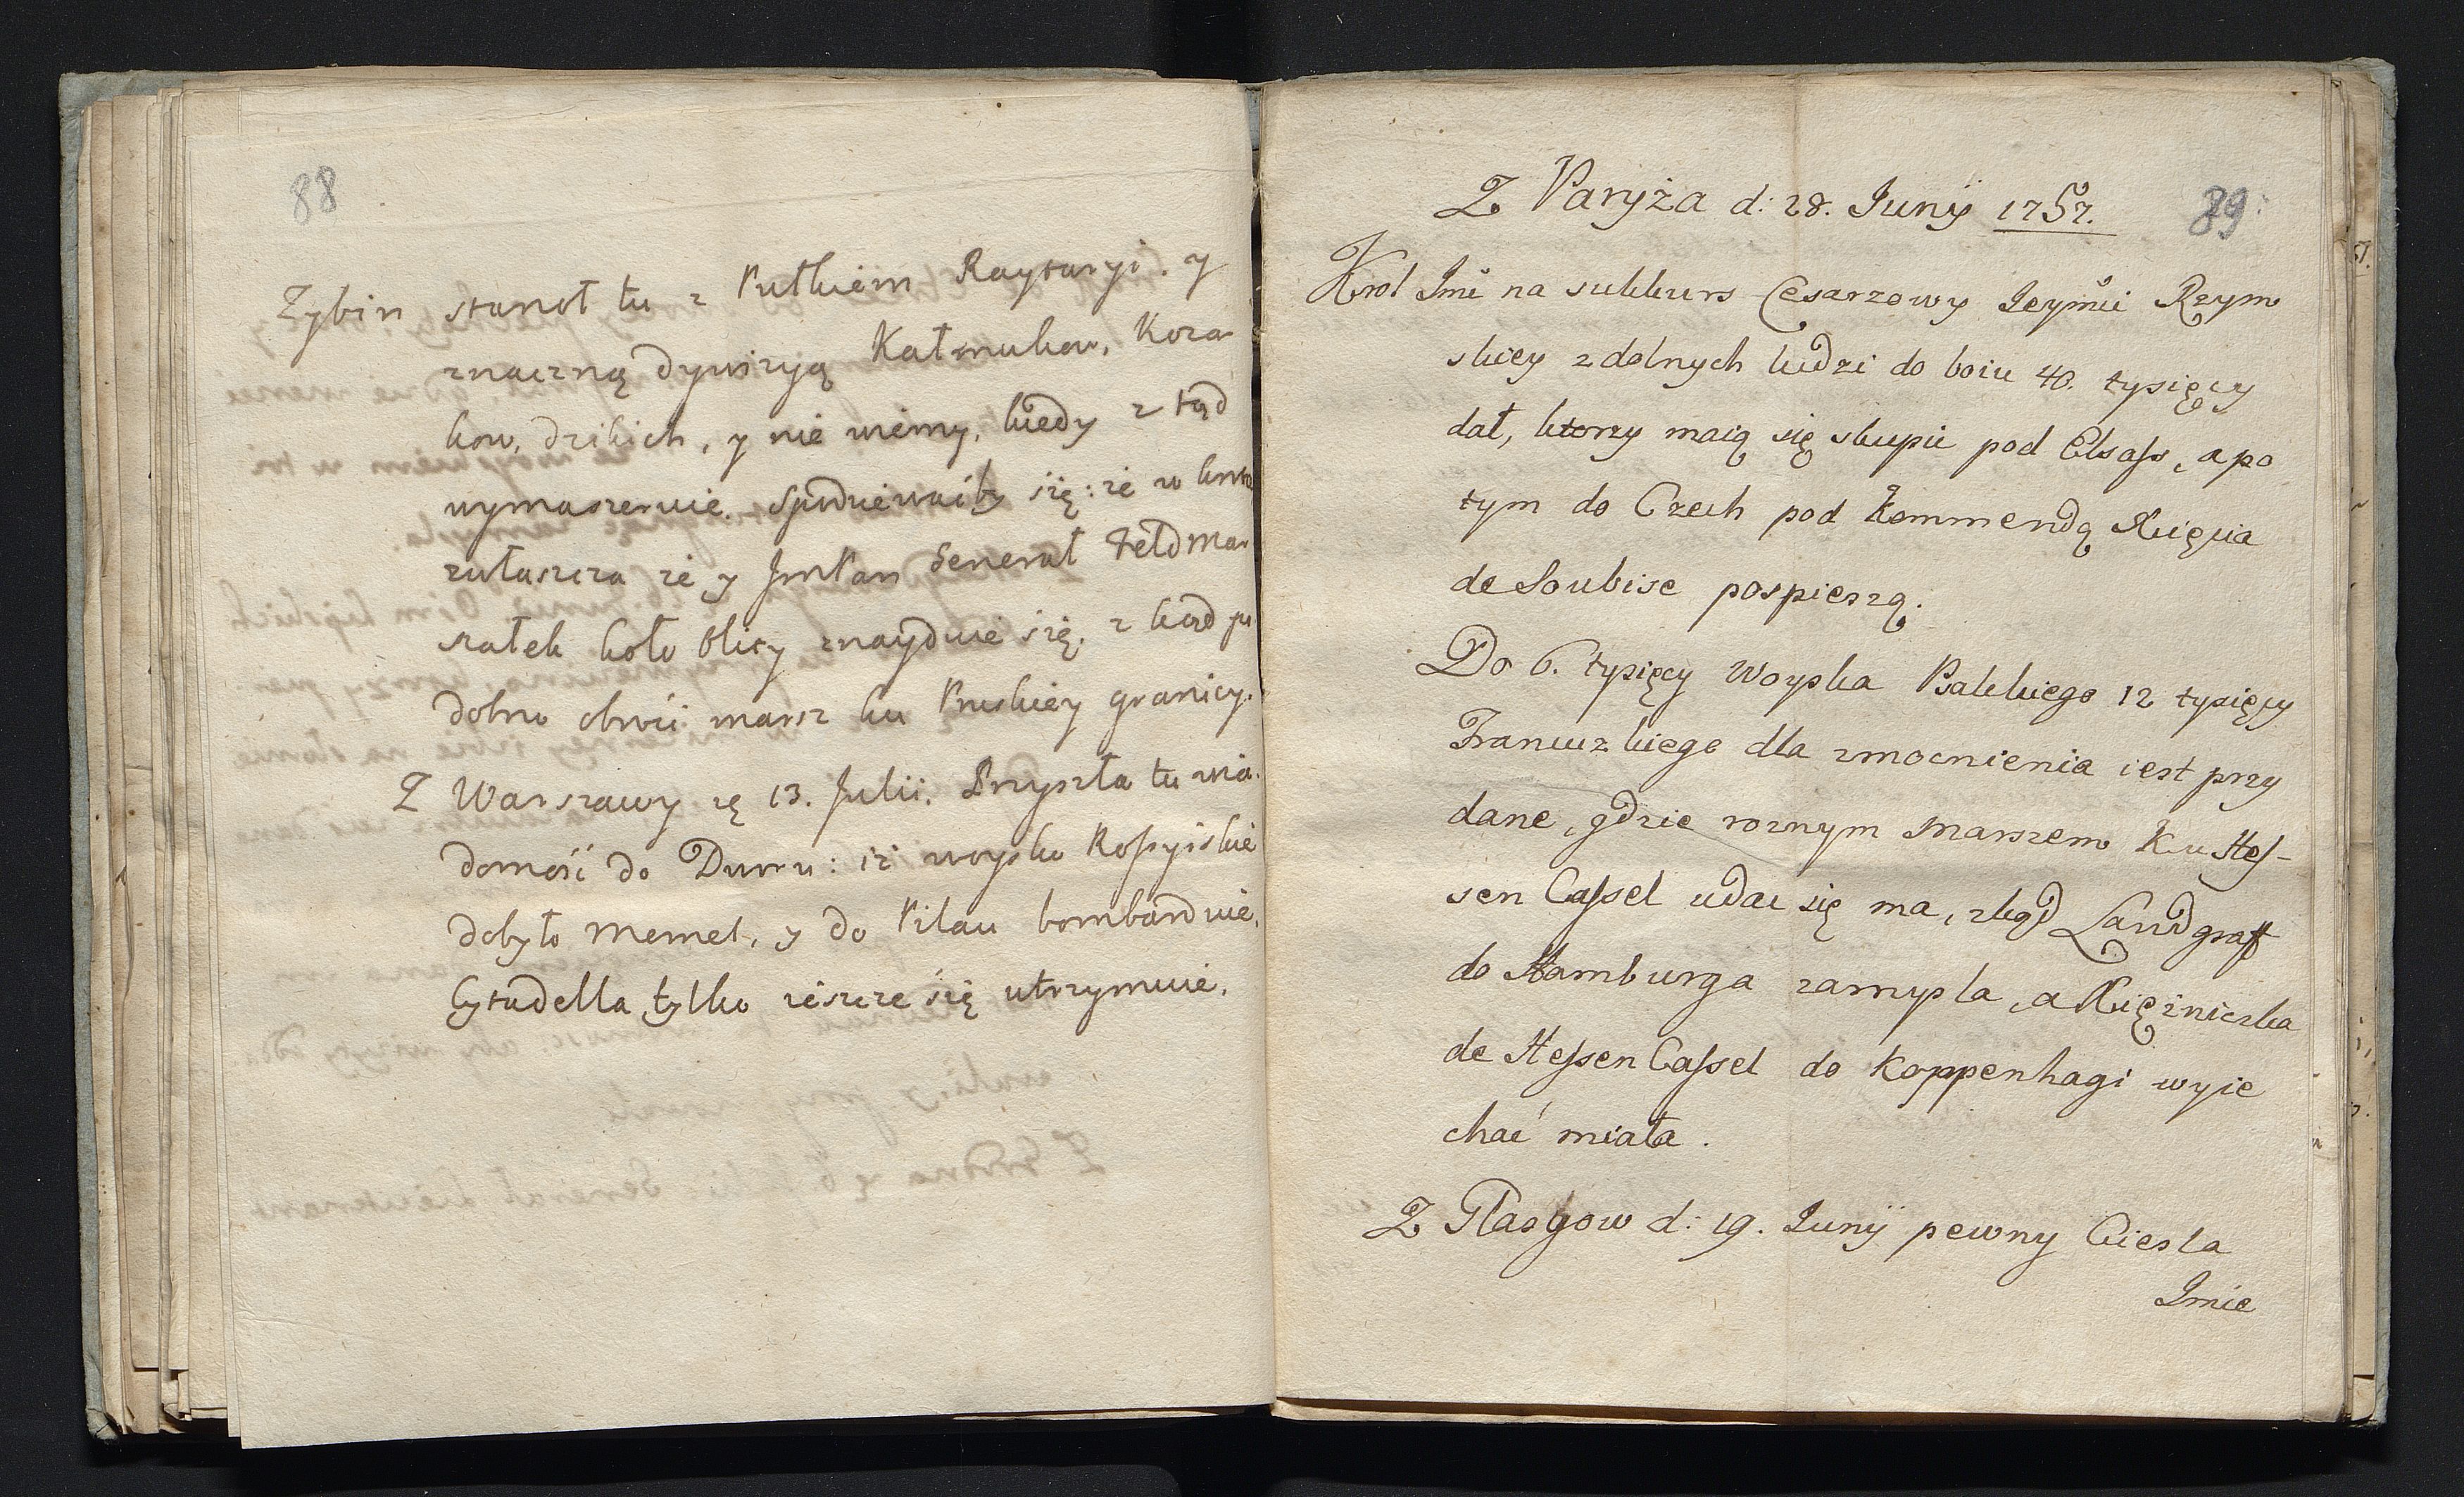 88
Zybin stanoł tu z Pułkiem Raytaryi. y
znaczną dywizyą Kałmukow, Koza
kow, dzikich, y nie wiemy, kiedy z tąd
wymaszeruie. Spodziewaćby się: że w krot
ze y JmPan Generał Feldmar
szałek koło Olity znayduie się, z kąd po
dobno obroci marsz ku Pruskiey granicy.
Z Warszawy dę 13. Julii. Przyszła tu wia
domość do Dworu: iż woysko Rossyiskie
dobyło Memel, y do Pilau bombarduie,
Cytadella tylko ieszcze się utrzymuie.
89
Z Paryża d: 28. Junij 1757.
Krol Jmć na sukkurs Cesarzowy Jeymci Rzym
skiey zdolnych ludzi do boiu 40. tysięcy
dał, ktorzy maią się skupić pod Elsass, a po
tym do Czech pod Kommendą Xięcia
de Soubise pospieszą.
Do 6. tysięcy Woyska Palskiego 12 tysięcy
Francuzkiego dla zmocnienia iest przy
dane, gdzie roznym Marszem Ku Hes-
sen Cassel udac się ma, zkąd Landgraff
do Hamburga zamysla, a Xiężniczka
de Hessen Cassel do Koppenhagi wyie
chać miała.
Z Glasgow d: 19. Junij pewny Ciesla
Jmie